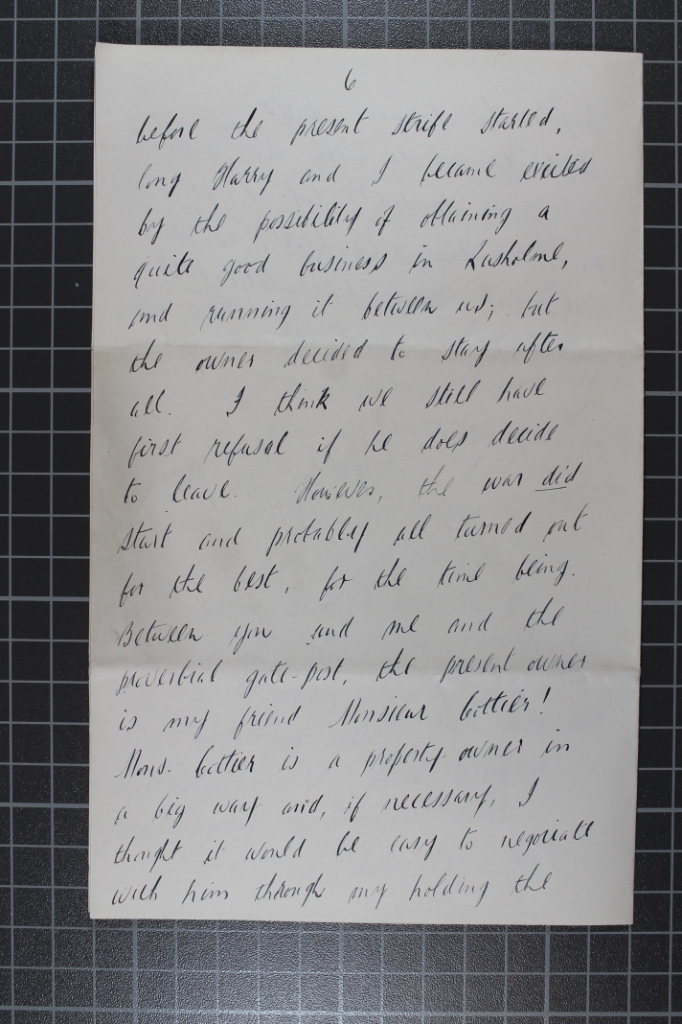 6
before the present strife started,
long Harry and I became excited
by the possibility of obtaining a
quite good business in Rusholme,
and running it between us; but
the owner decided to stay after
all. I think we still have
first refusal if he does decide
to leave. However, the war did
start and probably all turned out
for the best, for the time being.
Between you and me and the
proverbial gate-post, the present owner
is my friend Monsieur Cottier!
Mons. Cottier is a property-owner in
a big way and, if necessary, I
thought it would be easy to negotiate
with him through my holding the